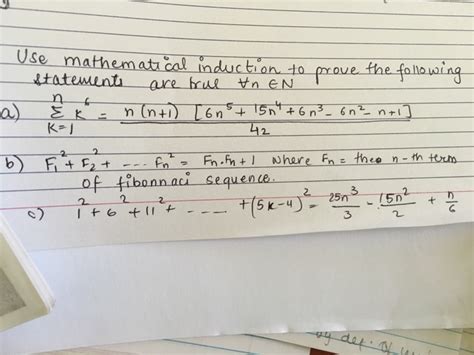 Use mathematical induction to prove the following
statements are true ∀n ∈N
a) n∑k=1 k⁶ = n(n+1) [6n⁵ + 15n⁴ + 6n³ - 6n² - n+1] / 42
b) F₁² + F₂² + --- Fn² = Fn.Fn+1 where Fn = the n-th term
of fibonnaci sequence.
c) 1² + 6² + 11² + ---- +(5k-4)² = 25n³/3 - 15n²/2 + n/6
by def.